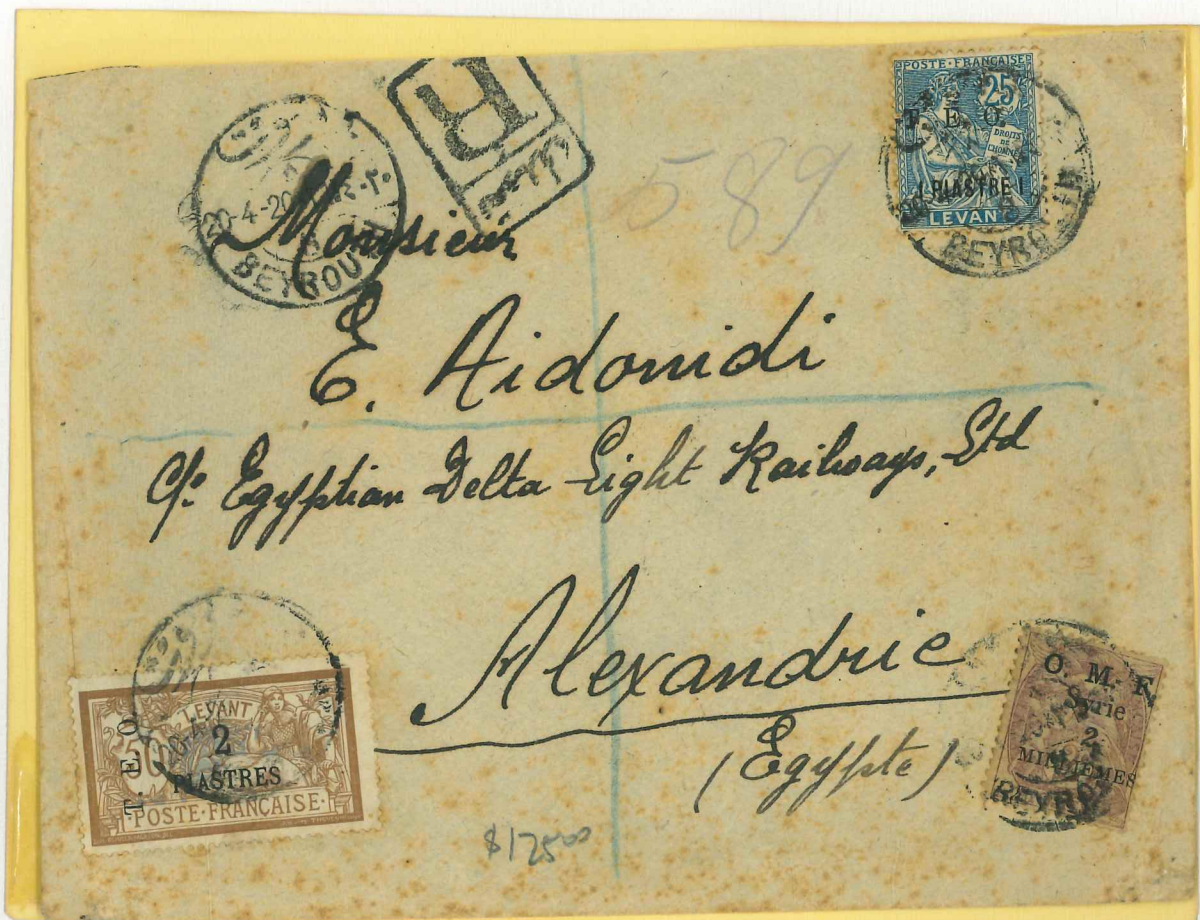 20-4-20
BEYROUTH
R
589
POSTE·FRANÇAISE
25
T. E. O.
DROITS
DE
L'HOMME
1 PIASTRE 1
LEVANT
BEYRO
Monsieur
E. Aidonidi
c/o Egyptian Delta Light Railways, Ltd
Alexandrie
(Egypte)
LEVANT
50
2
PIASTRES
T. E O
POSTE·FRANÇAISE·
O. M. F.
Syrie
2
MILLIEMES
BEYRO
$17500